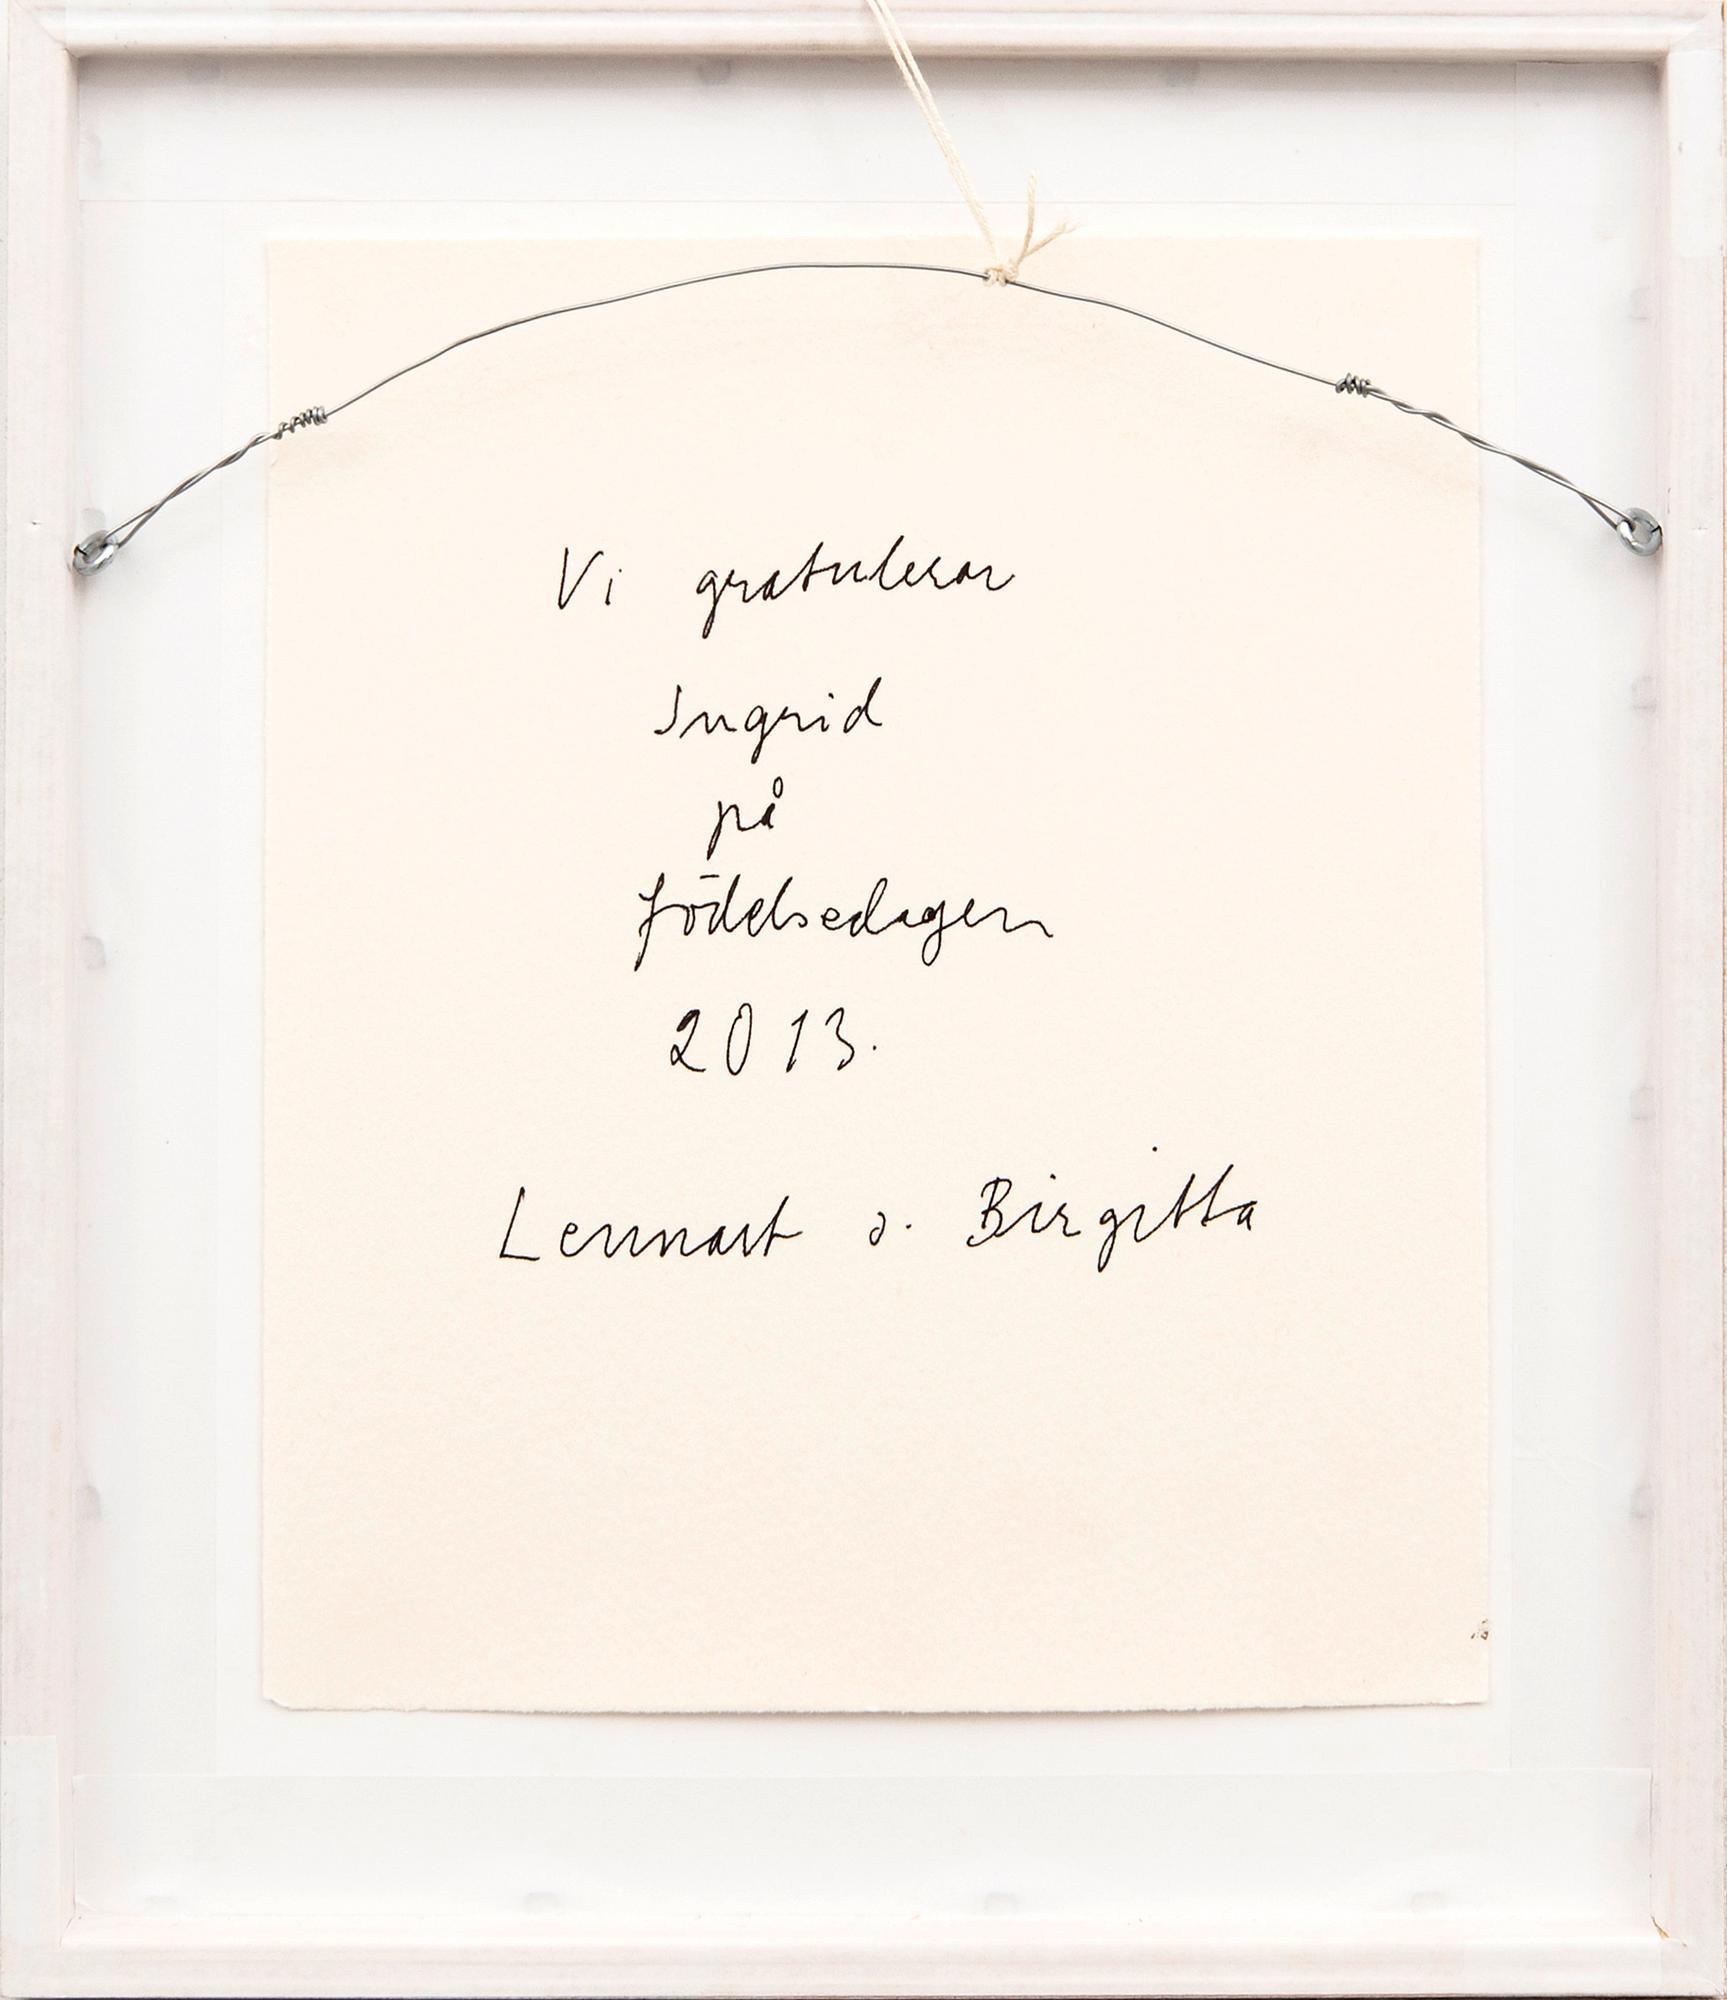 Vi gratulerar
Ingrid
på
födelsedagen
2013.
Lennart o. Birgitta